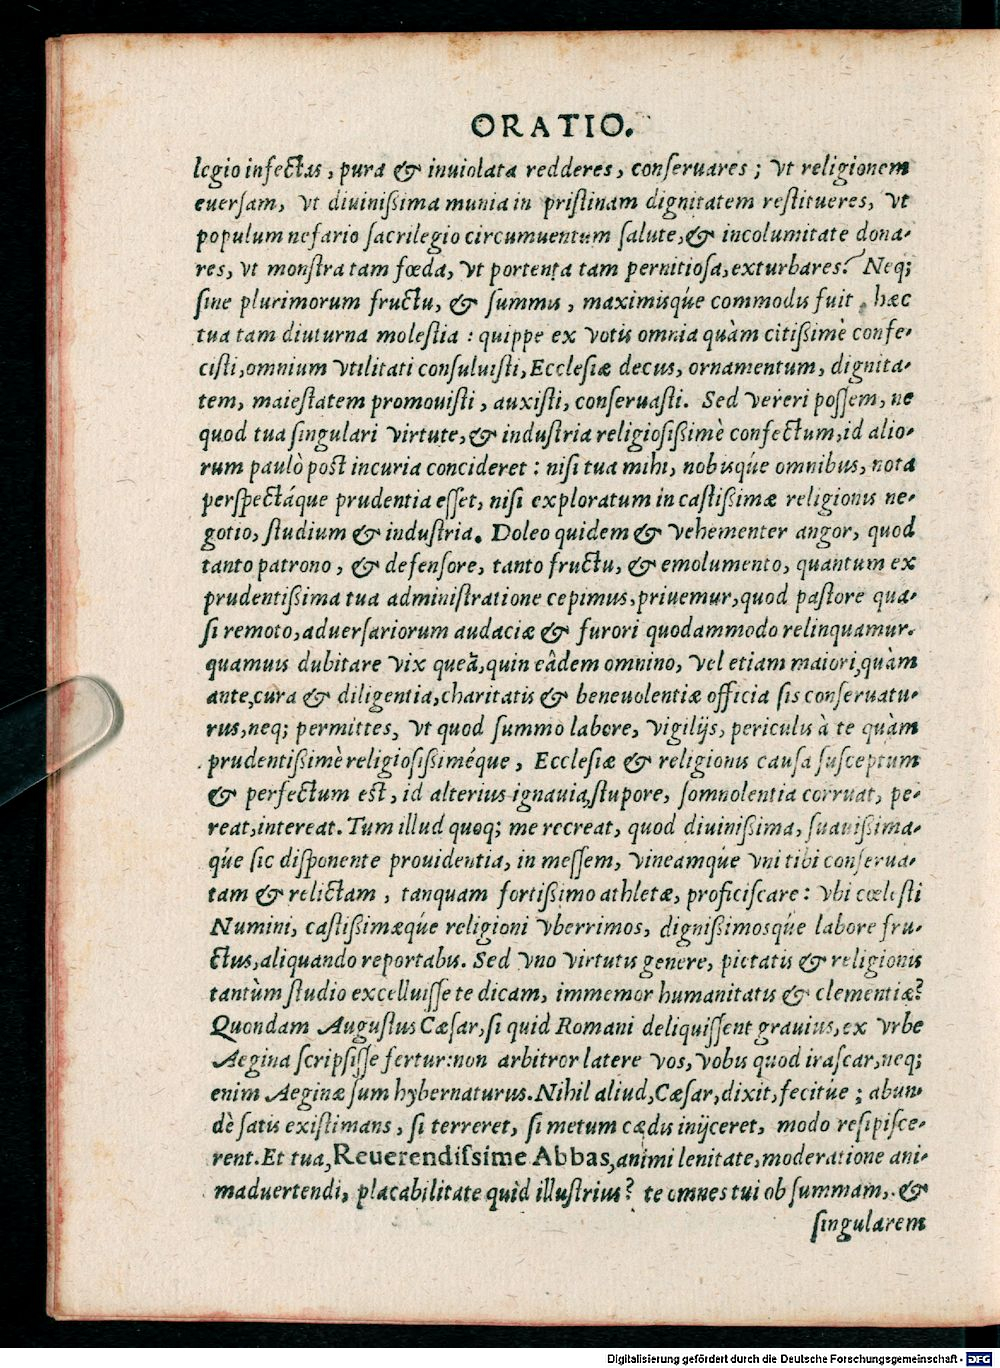 ORATIO.
legio infectas, pura & inuiolata redderes, conseruares; vt religionem
euersam, vt diuinißima munia in pristinam dignitatem restitueres, vt
populum nefario sacrilegio circumuentum salute, & incolumitate dona-
res, vt monstra tam fœda, vt portenta tam pernitiosa, exturbares? Neq;
sine plurimorum fructu, & summis, maximisq́ue commodis fuit hæc
tua tam diuturna molestia: quippe ex votis omnia quàm citißimè confe-
cisti, omnium vtilitati consuluisti, Ecclesiæ decus, ornamentum, dignita-
tem, maiestatem promouisti, auxisti, conseruasti. Sed vereri possem, ne
quod tua singulari virtute, & industria religiosißimè confectum, id alio-
rum paulò post incuria concideret: nisi tua mihi, nobisq́ue omnibus, nota
perspectáque prudentia esset, nisi exploratum in castißimæ religionis ne-
gotio, studium & industria. Doleo quidem & vehementer angor, quod
tanto patrono, & defensore, tanto fructu, & emolumento, quantum ex
prudentißima tua administratione cepimus, priuemur, quod pastore qua-
si remoto, aduersariorum audaciæ & furori quodammodo relinquamur.
quamuis dubitare vix queã, quin eâdem omnino, vel etiam maiori, quàm
ante, cura & diligentia, charitatis & beneuolentiæ officia sis conseruatu-
rus, neq; permittes, vt quod summo labore, vigilijs, periculis à te quàm
prudentißimè religiosißiméque, Ecclesiæ & religionis causa susceptum
& perfectum est, id alterius ignauia, stupore, somnolentia corruat, pe-
reat, intereat. Tum illud quoq; me recreat, quod diuinißima, suauißima-
q́ue sic disponente prouidentia, in messem, vineamq́ue vni tibi conserua-
tam & relictam, tanquam fortißimo athletæ, proficiscare: vbi cœlesti
Numini, castißimæq́ue religioni vberrimos, dignißimosq́ue labore fru-
ctus, aliquando reportabis. Sed vno virtutis genere, pietatis & religionis
tantùm studio excelluisse te dicam, immemor humanitatis & clementiæ?
Quondam Augustus Cæsar, si quid Romani deliquissent grauius, ex vrbe
Aegina scripsisse fertur: non arbitror latere vos, vobis quod irascar, neq;
enim Aeginæ sum hybernaturus. Nihil aliud, Cæsar, dixit, fecitúe; abun-
dè satis existimans, si terreret, si metum cædis inijceret, modo resipisce-
rent. Et tua, Reuerendissime Abbas, animi lenitate, moderatione ani-
maduertendi, placabilitate quid illustrius? te omnes tui ob summam, &
singularem
Digitalisierung gefördert durch die Deutsche Forschungsgemeinschaft - DFG